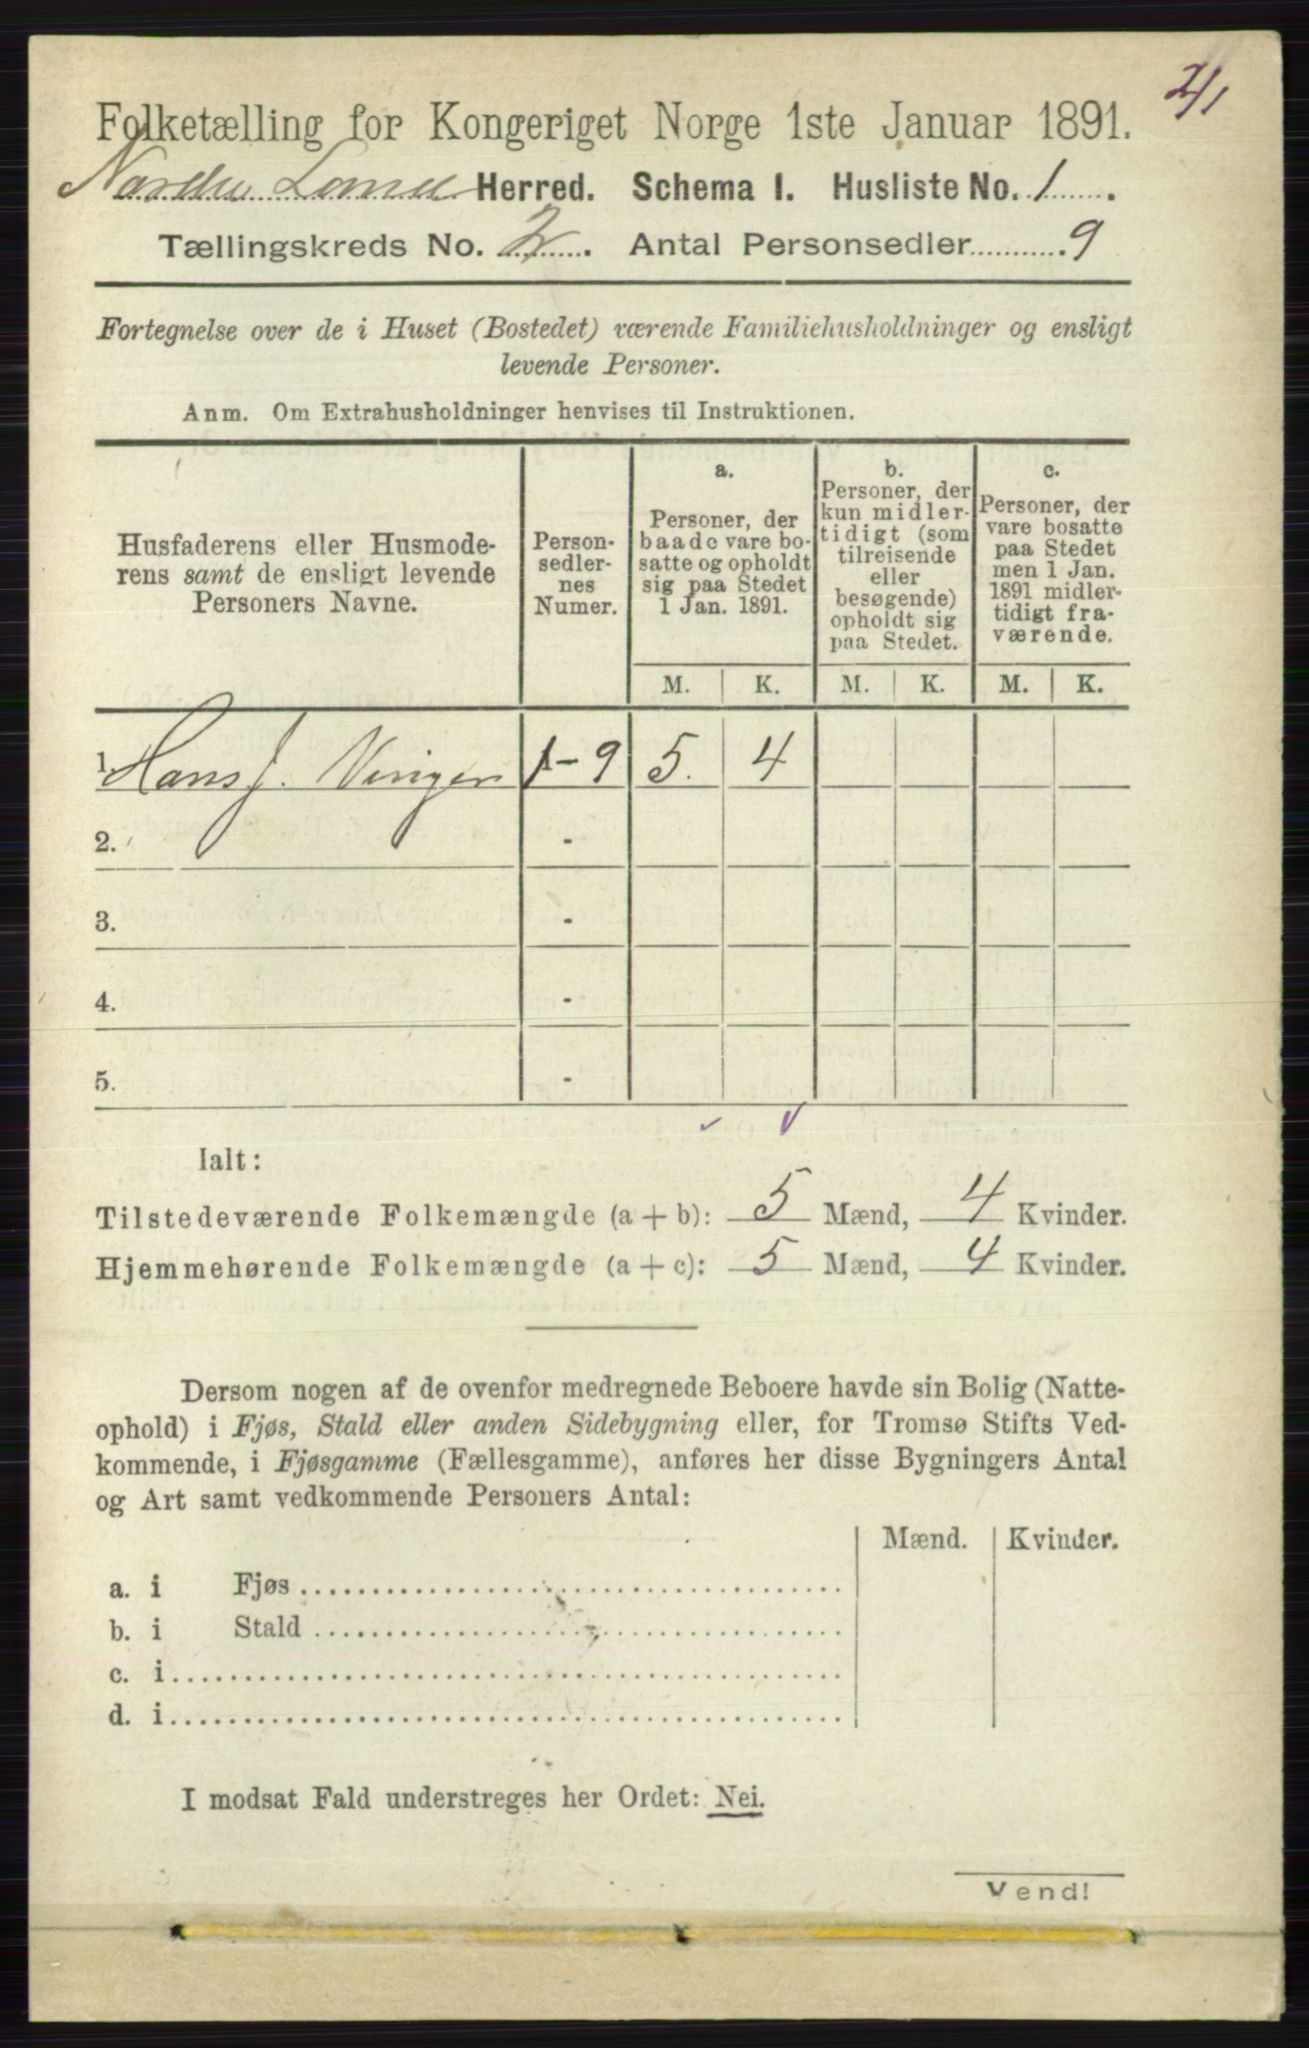 2/1
Folketælling for Kongeriget Norge 1ste Januar 1891.
Nordre Land Herred. Schema I. Husliste No. 1.
Tællingskreds No. 2. Antal Personsedler 9
Fortegnelse over de i Huset (Bostedet) værende Familiehusholdninger og ensligt
levende Personer.
Anm. Om Extrahusholdninger henvises til Instruktionen.
Husfaderens eller Husmode-
rens samt de ensligt levende
Personers Navne.
Person-
sedler-
nes
Numer.
a.
Personer, der
baade vare bo-
satte og opholdt
sig paa Stedet
1 Jan. 1891.
b.
Personer, der
kun midler-
tidigt (som
tilreisende
eller
besøgende)
opholdt sig
paa Stedet.
c.
Personer, der
vare bosatte
paa Stedet
men 1 Jan.
1891 midler-
tidigt fra-
værende.
M. K. M. K. M. K.
1. Hans J. Vinger 1-9 5. 4
2. -
3. -
4. -
5. -
Ialt:
Tilstedeværende Folkemængde (a + b): 5 Mænd, 4 Kvinder.
Hjemmehørende Folkemængde (a + c): 5 Mænd, 4 Kvinder.
Dersom nogen af de ovenfor medregnede Beboere havde sin Bolig (Natte-
ophold) i Fjøs, Stald eller anden Sidebygning eller, for Tromsø Stifts Ved-
kommende, i Fjøsgamme (Fællesgamme), anføres her disse Bygningers Antal
og Art samt vedkommende Personers Antal:
Mænd. Kvinder.
a. i Fjøs
b. i Stald
c. i
d. i
I modsat Fald understreges her Ordet: Nei.
Vend!